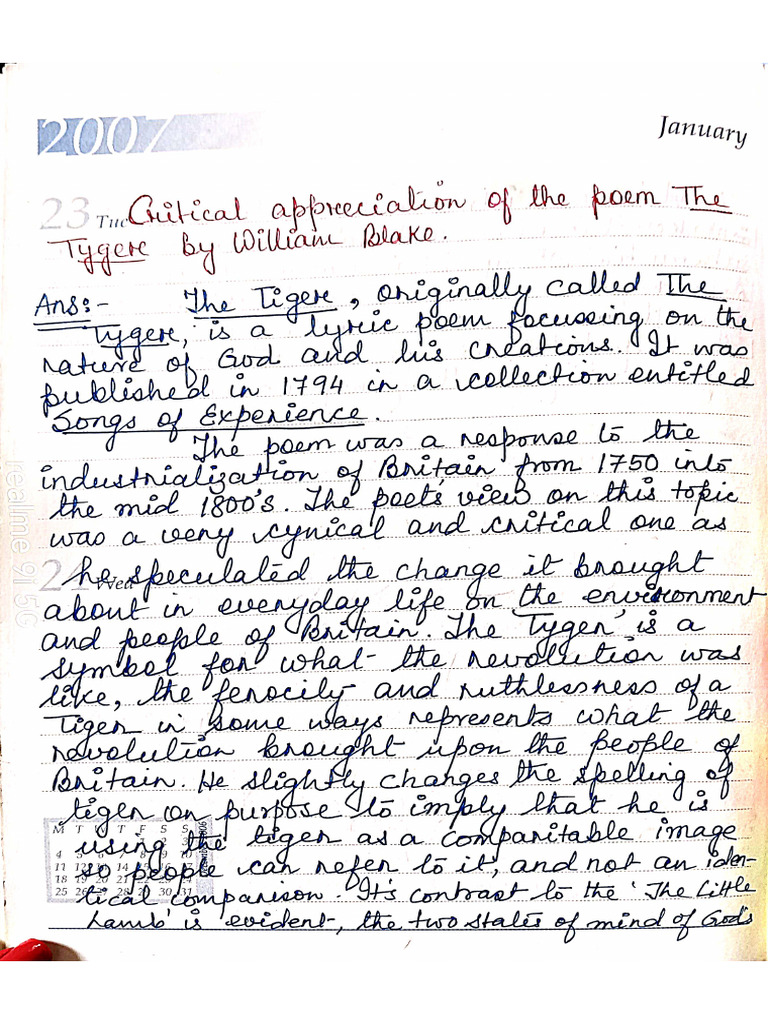 2007
January
23 Tue Critical appreciation of the poem The
Tyger by William Blake.
Ans:- The Tiger, originally called The
Tyger, is a lyric poem focussing on the
nature of God and his creations. It was
published in 1794 in a collection entitled
Songs of Experience.
The poem was a response to the
industrialization of Britain from 1750 into
the mid 1800's. The poet's view on this topic
was a very cynical and critical one as
24 Wed he speculated the change it brought
about in everyday life on the environment
and people of Britain. The 'Tyger' is a
symbol for what the revolution was
like, the ferocity and ruthlessness of a
Tiger in some ways represents what the
revolution brought upon the people of
Britain. He slightly changes the spelling of
tiger on purpose to imply that he is
using the tiger as a comparitable image
so people can refer to it, and not an iden-
tical comparison. It's contrast to the 'The Little
Lamb' is evident, the two states of mind of God's
M T W T F S S
11 12 14
18 19 20 21
25 26 28 30 31
realme 9i 5G